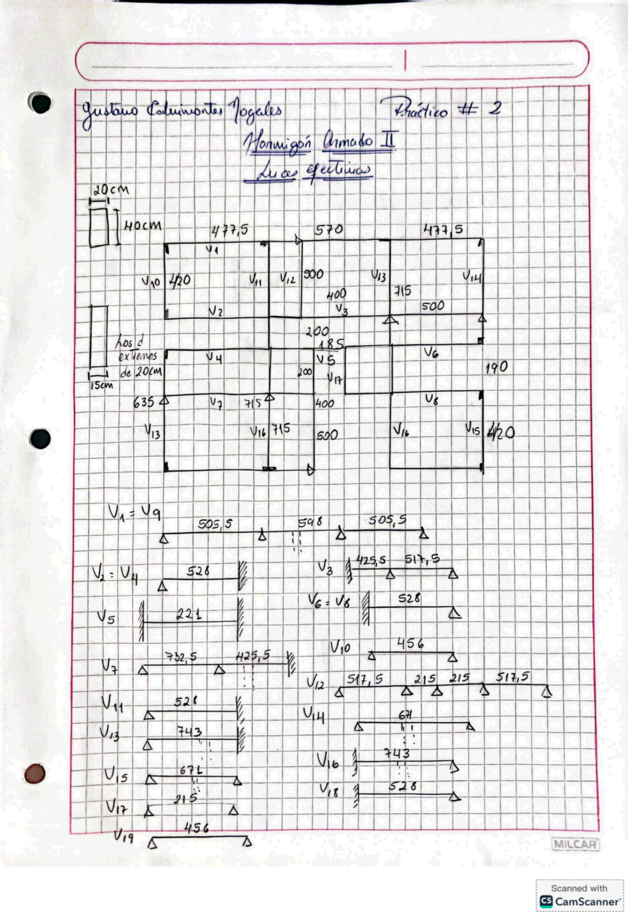 Gustavo Colmimontes Nogales Práctico # 2
Hormigón Armado II
Luces efectivas
20cm
40cm
477,5 570 477,5
V1
V10 420 V11 V12 300 V13 V14
400 715
V2 V3 500
200
Los d
extremos
de 20cm
15cm
185
V4 V5 V6
200 V17 190
635 V7 715 400 V8
V13 V16 715 500 V16 V15 420
V1 = V9 505,5 598 505,5
V2 = V4 528
V3 425,5 517,5
V5 221
V6 = V8 528
V7 732,5 425,5
V10 456
V12 517,5 215 215 517,5
V11 528
V13 743
V14 671
V15 671
V16 743
V17 215
V18 528
V19 456
MILCAR
Scanned with
CS CamScanner